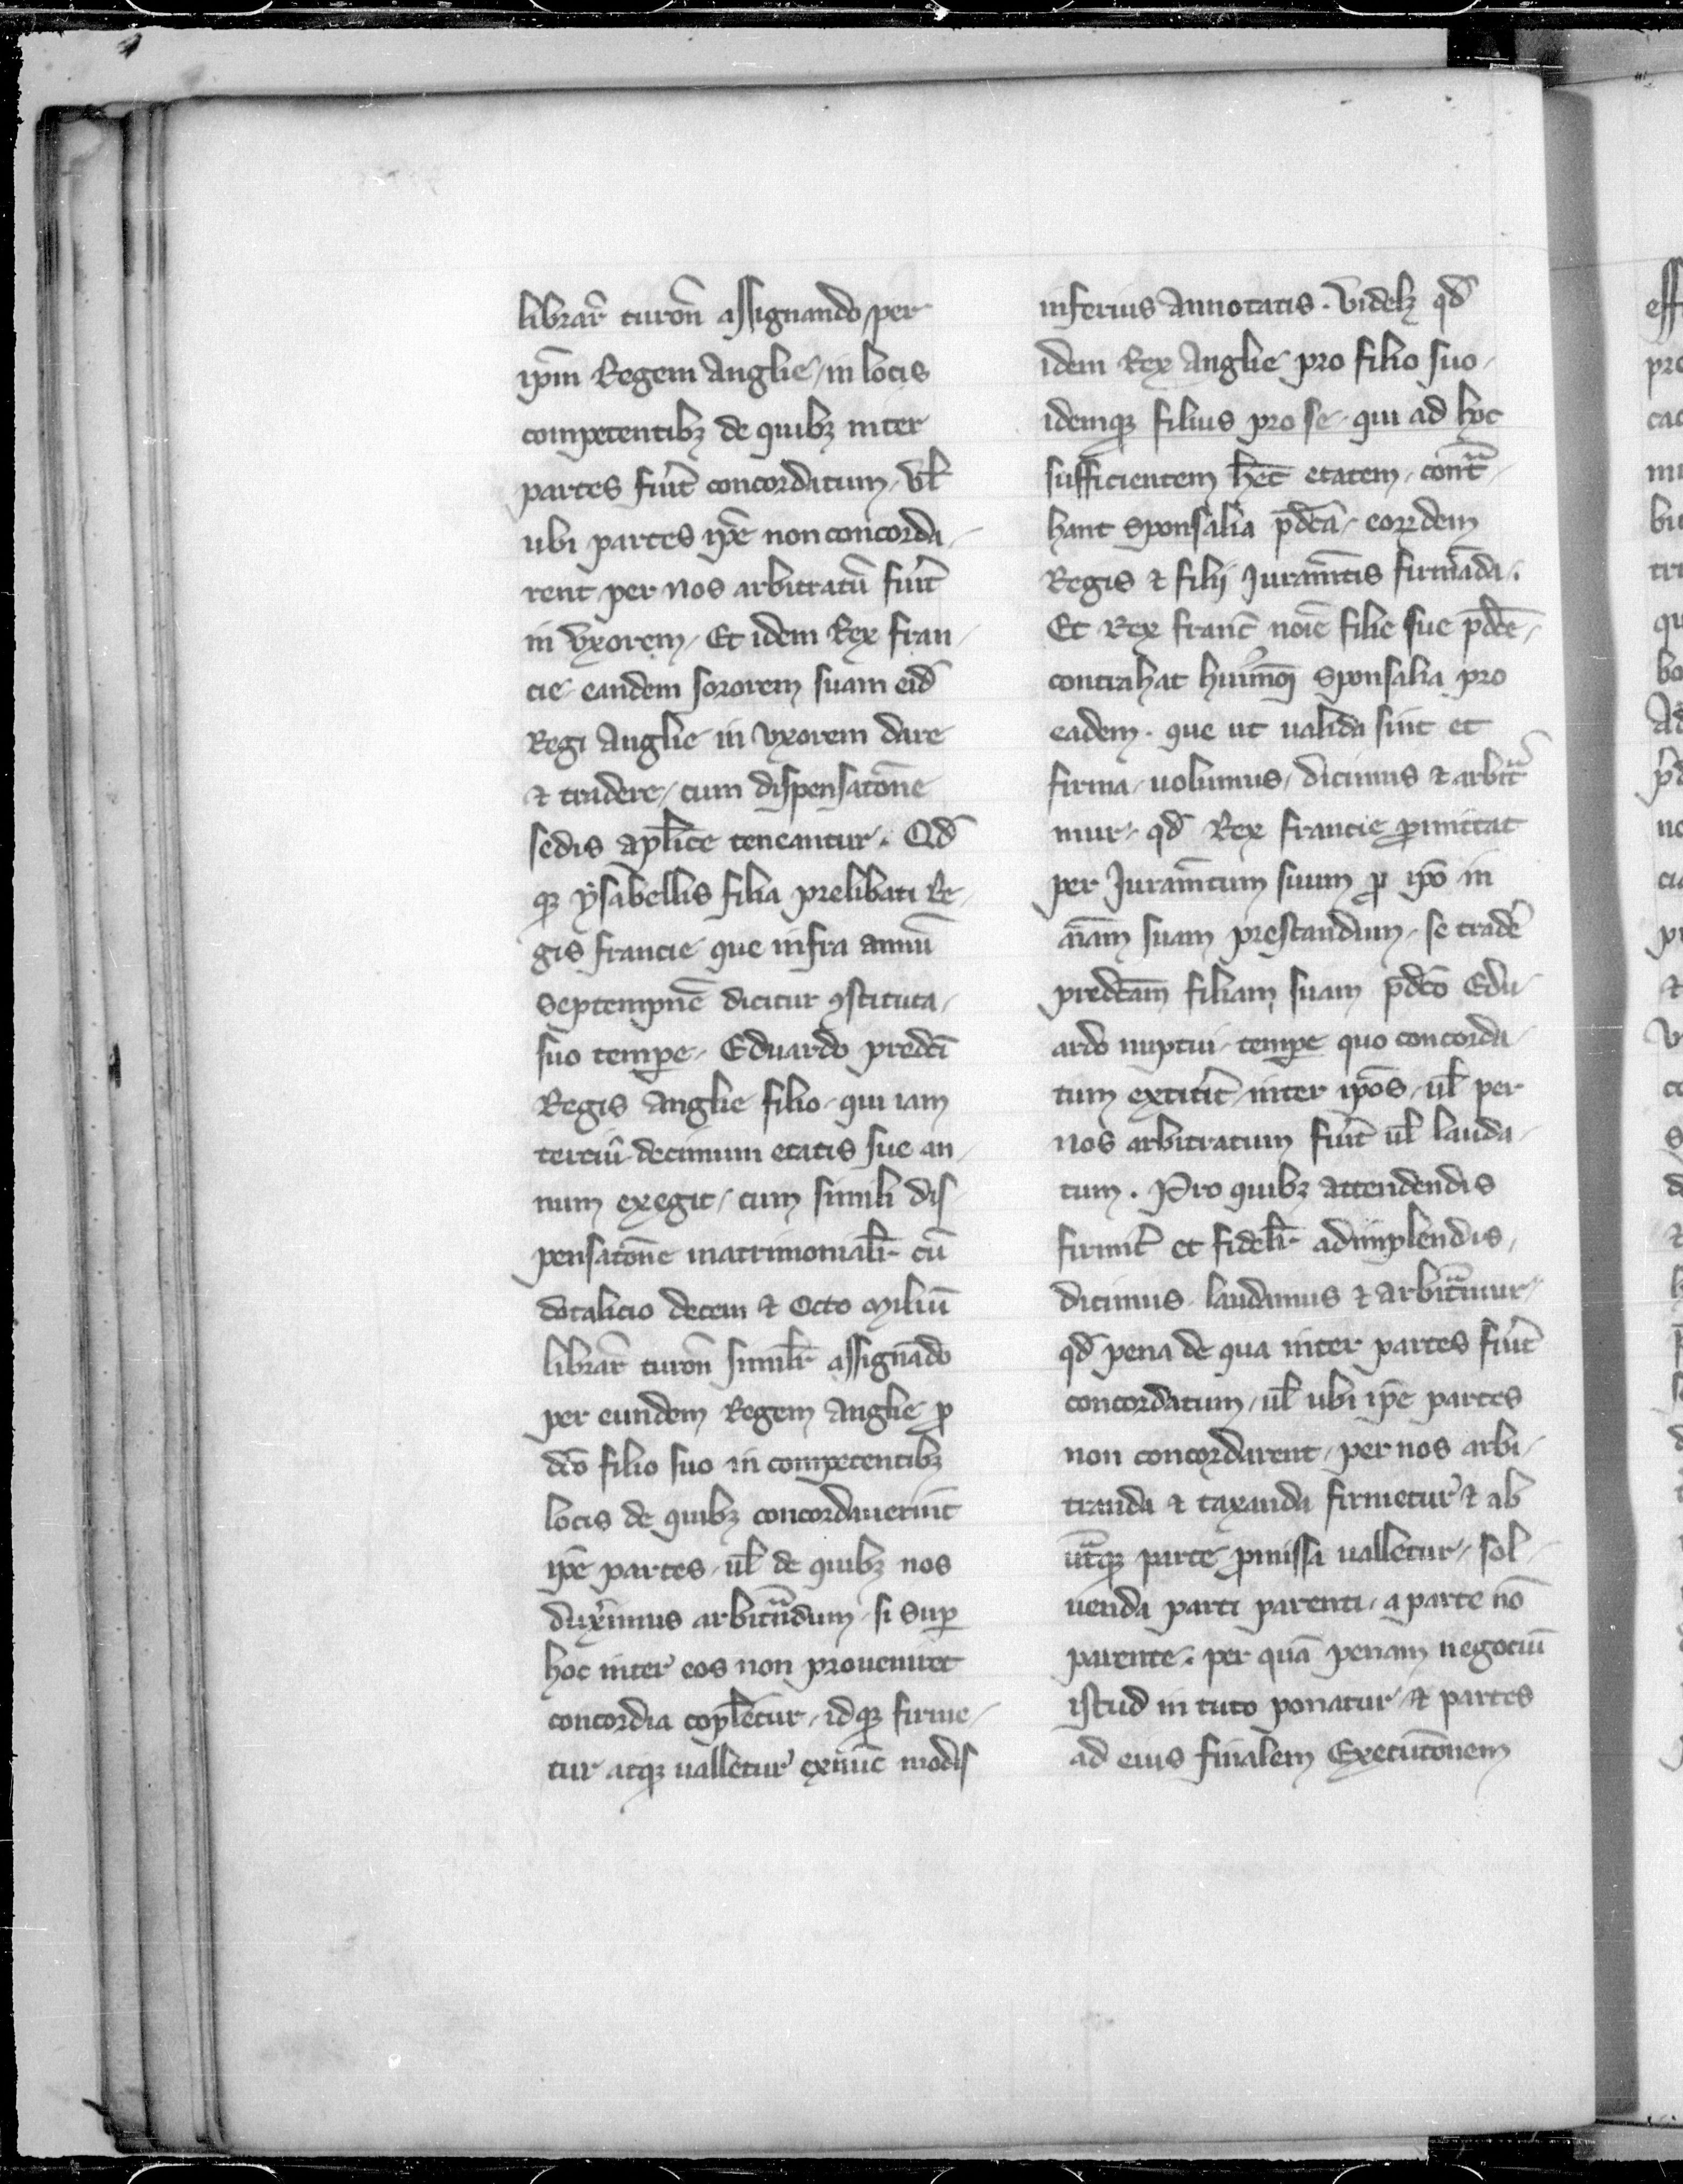 librar̄ turon̄ assignando per
ip̄m Regem Anglie / in locis
competentibꝫ de quibꝫ inter
partes fuit̄ concordatum / vl̄
ubi partes ip̄e non concorda-
rent / per nos arbitratū fuit̄
in vxorem / Et idem Rex Fran-
cie eandem sororem suam eid̄
Regi Anglie in vxorem dare
⁊ tradere / cum dispensatōne
sedis apl̄ice teneantur. Qd̄
qꝫ ysabellis filia prelibati Re-
gis francie que infra annū
Septempnē dicitur ꝯstituta /
suo tempe / Eduardo predc̄i
Regis Anglie filio / qui iam
terciū decimum etatis sue an-
num exegit / cum simili dis-
pensatōne matrimonial̄r cū
dotalicio decem ⁊ Octo miliū
librar̄ turon̄ simil̄r assignādo
per eundem Regem Anglie ꝓ
dc̄o filio suo in competentibꝫ
locis de quibꝫ concordauerint̄
ip̄e partes / ul̄ de quibꝫ nos
duxim̄us arbitᵃndum / si Suꝑ
hoc inter eos non proueniret
concordia copl̄etur / idqꝫ firme-
tur atqꝫ ualletur exnūc modis
inferius Annotatis. Videlꝫ qd̄
idem Rex Anglie pro filio suo /
idemqꝫ filius pro se / qui ad hoc
sufficientem h̄et etatem / contᵃ-
hant Sponsalia p̄dc̄a / eorꝛdem
Regis ⁊ filij Juram̄tis firmāda.
Et Rex franc̄ noīe filie sue p̄dc̄e /
contrahat huiꝰmōi Sponsalia pro
eadem. que ut ualida sint et
firma / uolumus / dicimus ⁊ arbitᵃ-
mur / qd̄ Rex Francie ꝓmittat
per Juramētum suum ꝓ ip̄o in
aīam suam prestandum / se tradē
predc̄am filiam suam p̄dc̄o Edu-
ardo nuptui / tempe quo concorda-
tum extitit̄ / inter ip̄os / ul̄ per
nos arbitratum fuit̄ ul̄ lauda-
tum. Pro quibꝫ attendendis
firmit̄ et fidel̄r adimplendis,
dicimus / laudamus ⁊ arbitᵃmur /
qd̄ pena de qua inter partes fuit̄
concordatum / ul̄ ubi ip̄e partes
non concordarent / per nos arbi-
tranda ⁊ taxanda firmetur ⁊ ab
utᵃqꝫ parte ꝓmissa ualletur / sol-
uenda parti parenti / a parte nō
parente. per quā penam negociū
istud in tuto ponatur ⁊ partes
ad eius finalem Executōnem